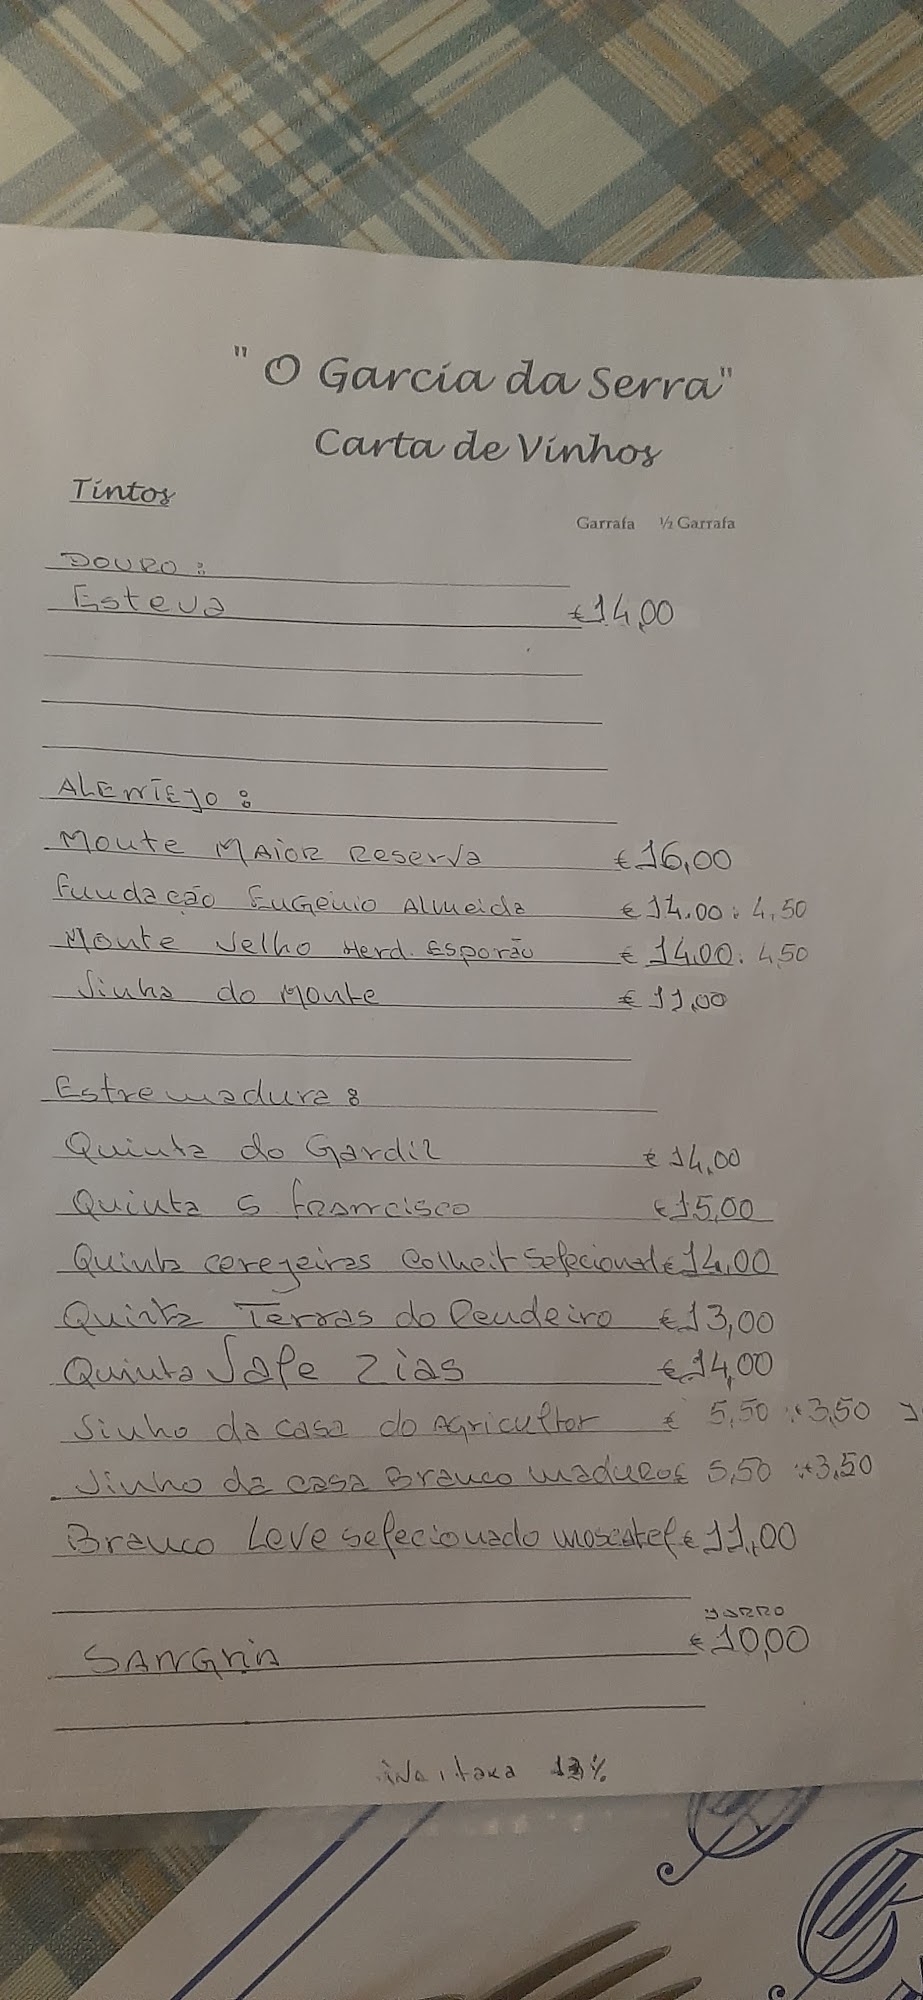 " O Garcia da Serra"
Carta de Vinhos
Tintos
Garrafa ½ Garrafa
DOURO :
Esteva €14,00
ALENTEJO :
Monte MAIOR Reserva €16,00
Fundação EUGENIO ALMEIDA € 14.00 : 4,50
Monte Velho Herd. Esporão € 14,00. 4,50
Vinha do Monte € 11,00
Estremadura :
Quinta do Gardil € 14,00
Quinta S francisco €15,00
Quinta cerejeiras Colheit Selecionad €14,00
Quinta Terras do Rendeiro €13,00
Quinta Vale Zias €14,00
Vinho da casa do Agricultor € 5,50 3,50
Vinho da casa Branco maduro € 5,50 3,50
Branco Leve selecionado moscatel €11,00
JARRO
SANGRIA € 10,00
iva, taxa 13%